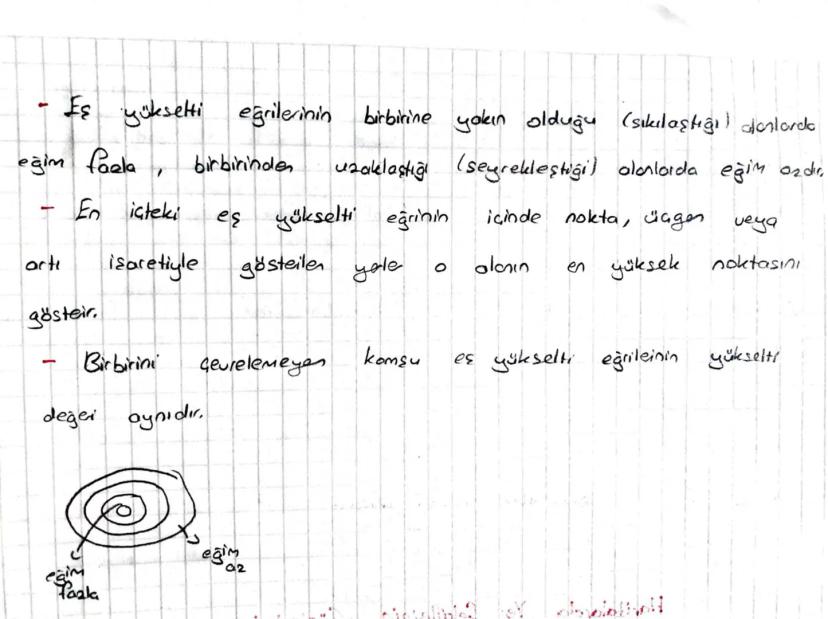 - Eş yükselti eğrilerinin birbirine yakın olduğu (sıkılaştığı) alanlarda
eğim fazla, birbirinden uzaklaştığı (seyrekleştiği) alanlarda eğim azdır.
- En içteki eş yükselti eğrinin içinde nokta, üçgen veya
artı işaretiyle gösteilen yele o alanın en yüksek noktasını
gösteir.
- Birbirini çevrelemeyen komşu eş yükselti eğrileinin yükselti
değei aynıdır.
eğim
az
eğim
fazla